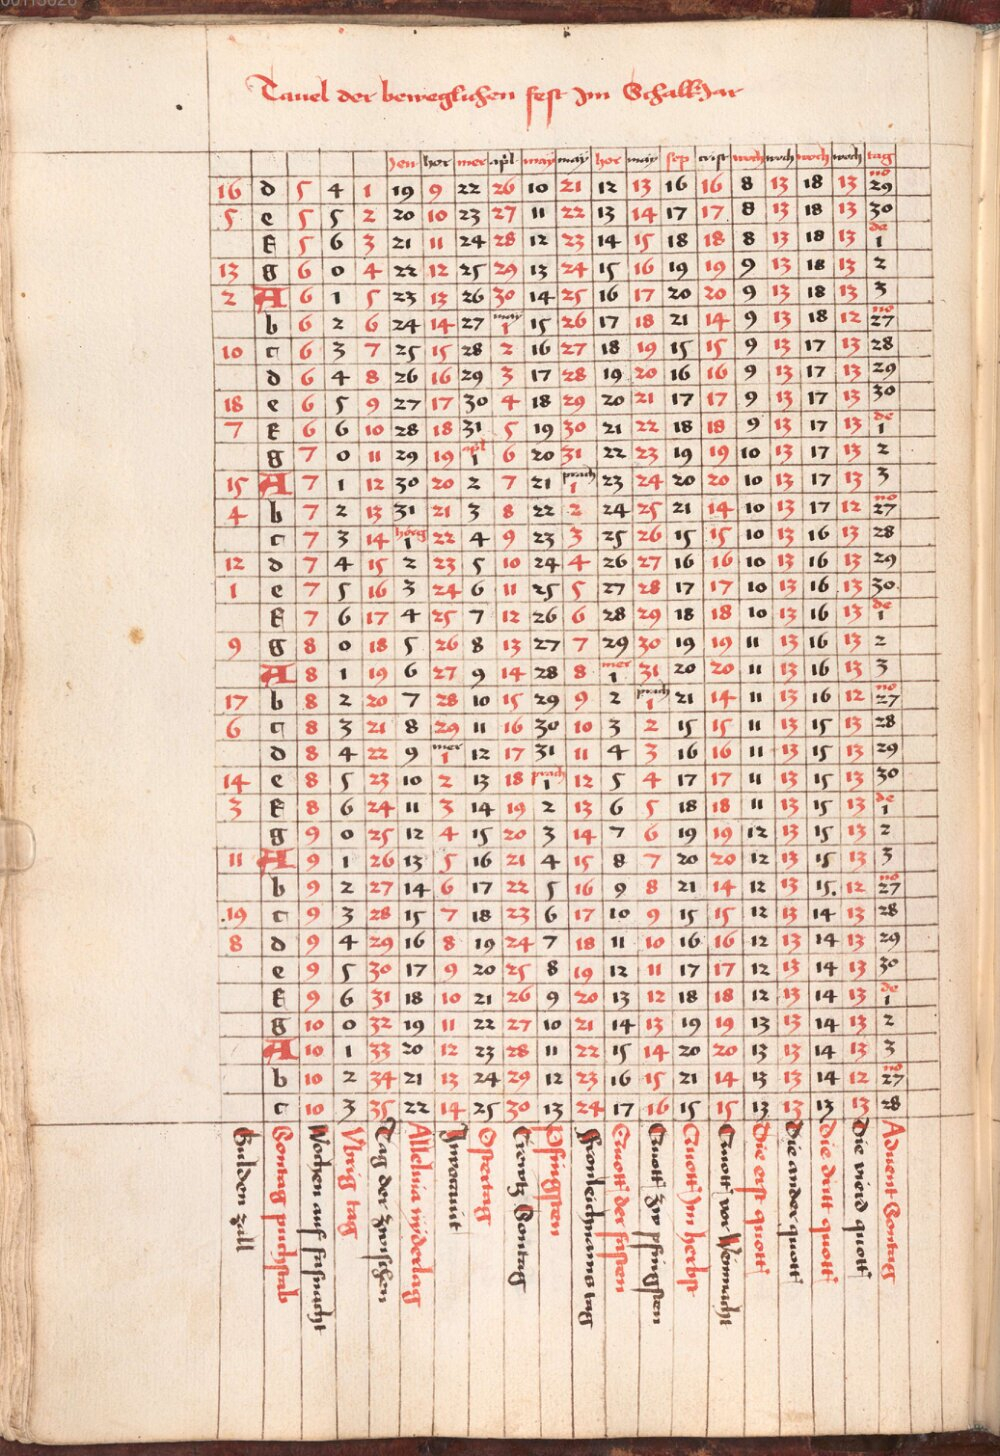 Tauel der beweglichen fest Im Schalk Jar
Jen hor mer apl may may hor may sep crist woch woch woch woch tag
16 d 5 4 1 19 9 22 26 10 21 12 13 16 16 8 13 18 13 no 29
5 e 5 5 2 20 10 23 27 11 22 13 14 17 17 8 13 18 13 30
f 5 6 3 21 11 24 28 12 23 14 15 18 18 8 13 18 13 de 1
13 g 6 0 4 22 12 25 29 13 24 15 16 19 19 9 13 18 13 2
2 A 6 1 5 23 13 26 30 14 25 16 17 20 20 9 13 18 13 3
b 6 2 6 24 14 27 may 1 15 26 17 18 21 14 9 13 18 12 no 27
10 c 6 3 7 25 15 28 2 16 27 18 19 15 15 9 13 17 13 28
d 6 4 8 26 16 29 3 17 28 19 20 16 16 9 13 17 13 29
18 e 6 5 9 27 17 30 4 18 29 20 21 17 17 9 13 17 13 30
7 f 6 6 10 28 18 31 5 19 30 21 22 18 18 9 13 17 13 de 1
g 7 0 11 29 19 apl 1 6 20 31 22 23 19 19 10 13 17 13 2
15 A 7 1 12 30 20 2 7 21 prach 1 23 24 20 20 10 13 17 13 3
4 b 7 2 13 31 21 3 8 22 2 24 25 21 14 10 13 17 12 no 27
c 7 3 14 1 22 4 9 23 3 25 26 15 15 10 13 16 13 28
12 d 7 4 15 2 23 5 10 24 4 26 27 16 16 10 13 16 13 29
1 e 7 5 16 3 24 6 11 25 5 27 28 17 17 10 13 16 13 30
f 7 6 17 4 25 7 12 26 6 28 29 18 18 10 13 16 13 de 1
9 g 8 0 18 5 26 8 13 27 7 29 30 19 19 11 13 16 13 2
A 8 1 19 6 27 9 14 28 8 mer 1 31 20 20 11 13 16 13 3
17 b 8 2 20 7 28 10 15 29 9 2 prach 1 21 14 11 13 16 12 no 27
6 c 8 3 21 8 29 11 16 30 10 3 2 15 15 11 13 15 13 28
d 8 4 22 9 mer 1 12 17 31 11 4 3 16 16 11 13 15 13 29
14 e 8 5 23 10 2 13 18 prach 1 12 5 4 17 17 11 13 15 13 30
3 f 8 6 24 11 3 14 19 2 13 6 5 18 18 11 13 15 13 de 1
g 9 0 25 12 4 15 20 3 14 7 6 19 19 12 13 15 13 2
11 A 9 1 26 13 5 16 21 4 15 8 7 20 20 12 13 15 13 3
b 9 2 27 14 6 17 22 5 16 9 8 21 14 12 13 15. 12 no 27
.19 c 9 3 28 15 7 18 23 6 17 10 9 15 15 12 13 14 13 28
8 d 9 4 29 16 8 19 24 7 18 11 10 16 16 12 13 14 13 29
e 9 5 30 17 9 20 25 8 19 12 11 17 17 12 13 14 13 30
f 9 6 31 18 10 21 26 9 20 13 12 18 18 12 13 14 13 de 1
g 10 0 32 19 11 22 27 10 21 14 13 19 19 13 13 14 13 2
A 10 1 33 20 12 23 28 11 22 15 14 20 20 13 13 14 13 3
b 10 2 34 21 13 24 29 12 23 16 15 21 14 13 13 14 12 no 27
c 10 3 35 22 14 25 30 13 24 17 16 15 15 13 13 13 13 28
Gulden zall
Sontag puchstab
Wochen auf fasnacht
Vbrig tag
Tag der zwischen
Alleluia nyderlag
Inuocauit
Ostertag
Creutz Sontag
Pfingsten
Fronleichnams tag
Quott der fasten
Quott zw pfingsten
Quott Im herbst
Quott vor Weinnacht
Die erst quott
Die ander quott
Die dritt quott
Die vierd quott
Aduent Sontag